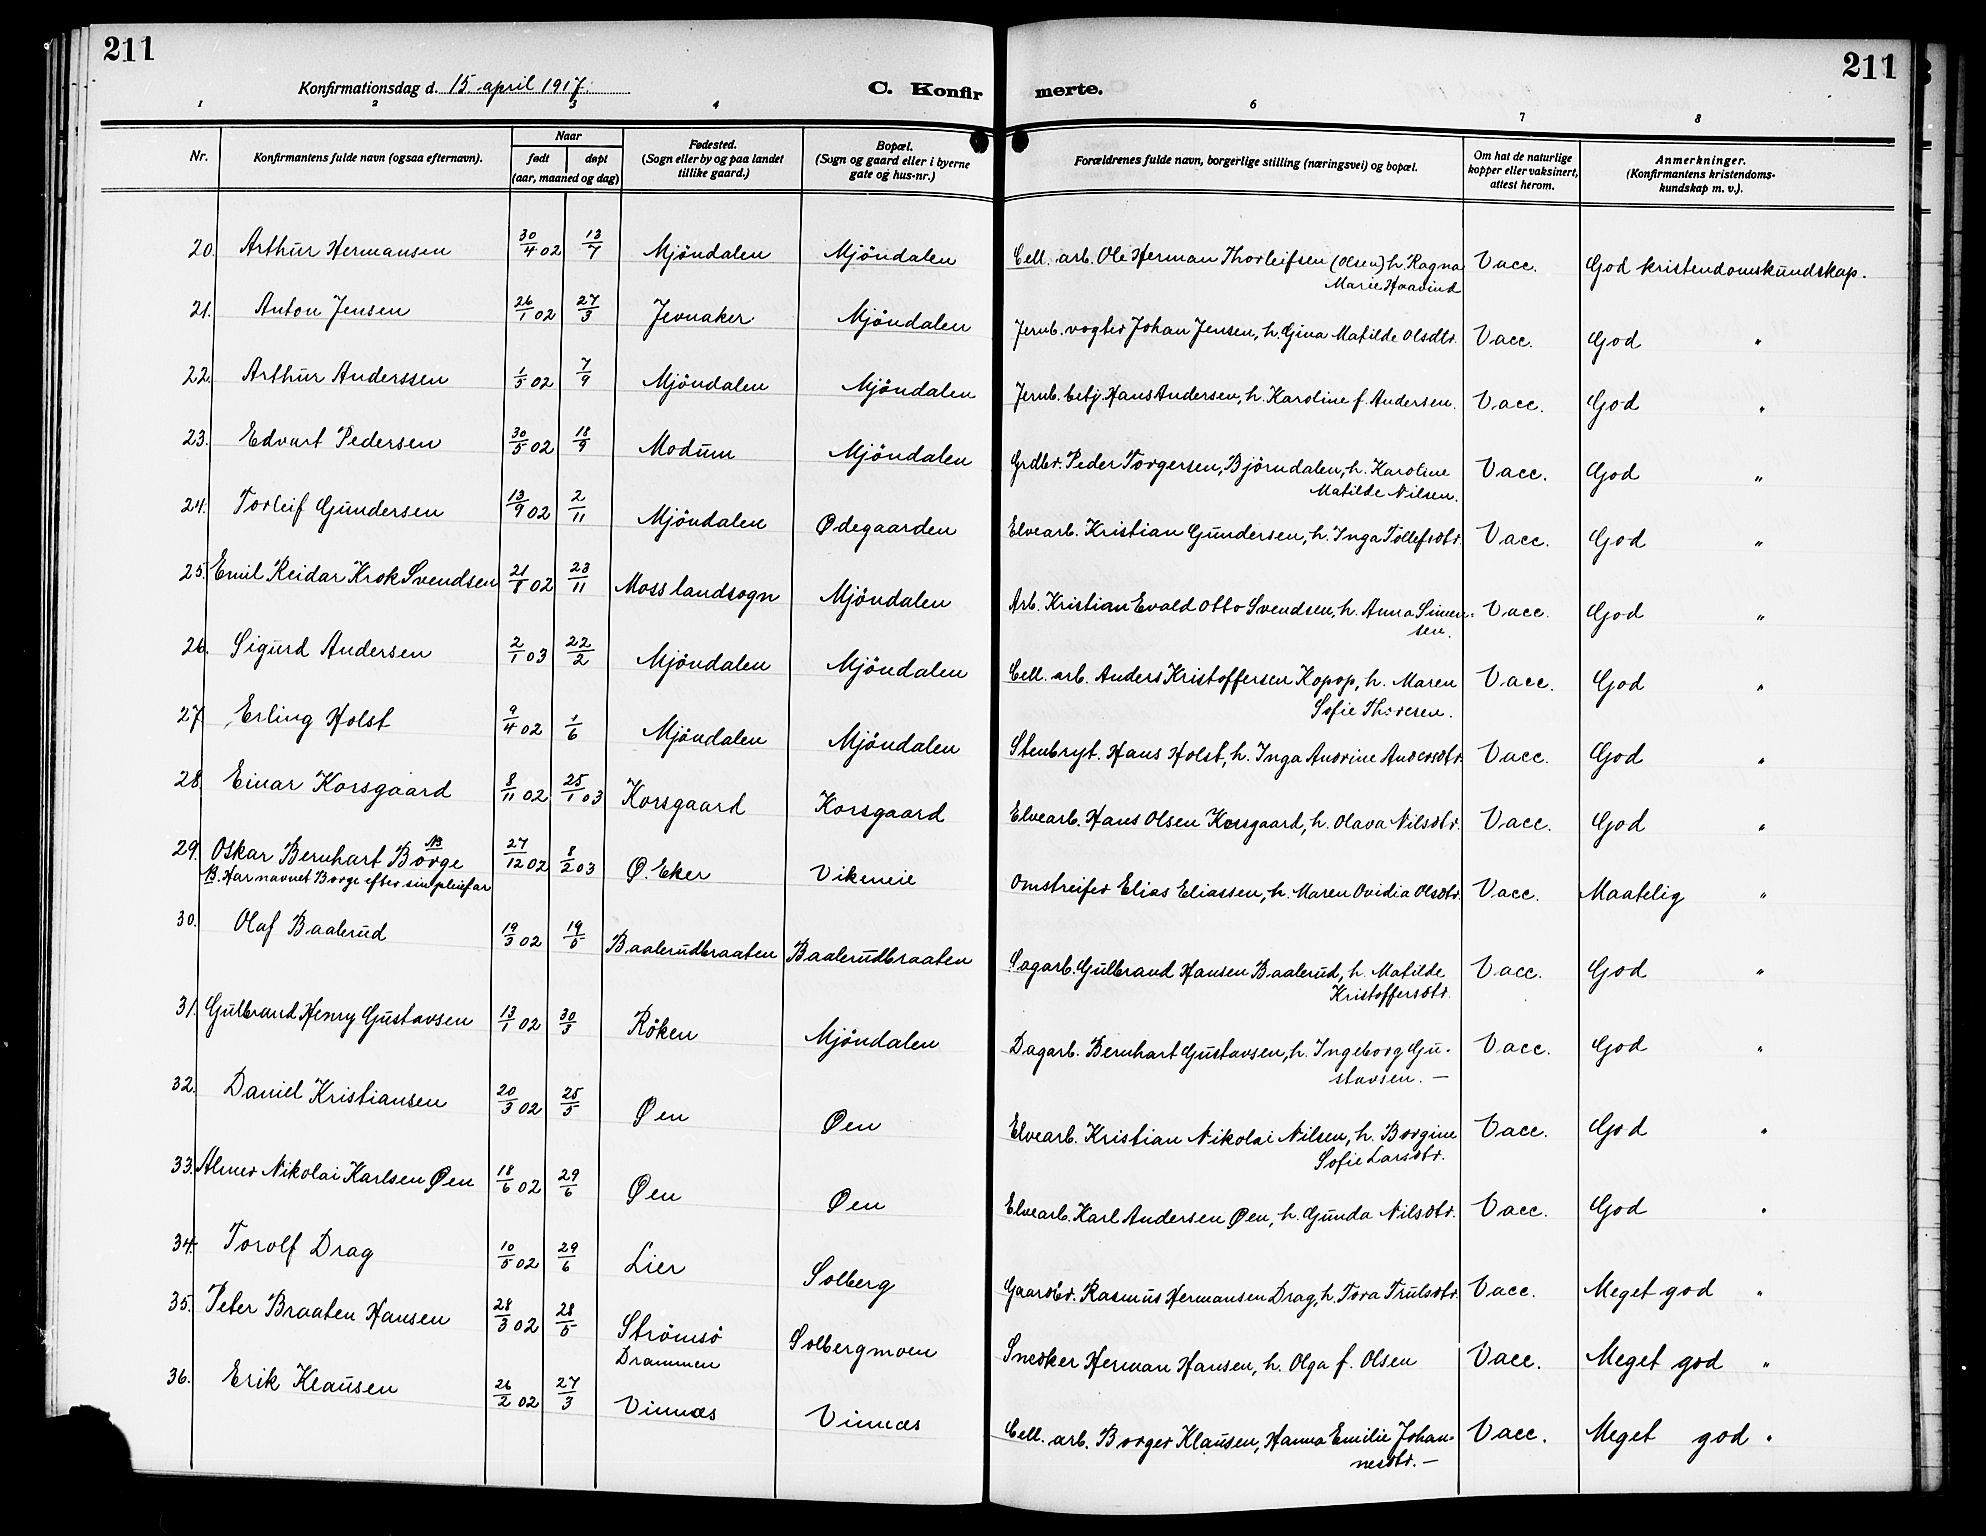 211
211
Konfirmationsdag d. 15 april 1917.
C. Konfir merte.
1 2 3 4 6 7 8
Nr. | Konfirmantens fulde navn (ogsaa efternavn). | Naar født døpt (aar, maaned og dag) | Fødested. (Sogn eller by og paa landet tillike gaard.) | Bopæl. (Sogn og gaard eller i byerne gate og hus-nr.) | Forældrenes fulde navn, borgerlige stilling (næringsvei) og bopæl. | Om hat de naturlige kopper eller vaksinert, attest herom. | Anmerkninger. (Konfirmantens kristendoms-kundskap m. v.).
20. Arthur Hermansen 30/4 02 13/7 Mjöndalen Mjöndalen Cell. arb. Ole Herman Thorleifsen (Olsen) h. Ragna Vacc. God kristendomskundskap.
Marie Haavind
21. Anton Jensen 26/1 02 27/3 Jevnaker Mjöndalen Jernb. vogter Johan Jensen, h. Gina Matilde Olsdtr. Vacc. God "
22. Arthur Anderssen 1/5 02 7/9 Mjöndalen Mjöndalen Jernb. betj. Hans Andersen, h. Karoline f. Andersen. Vacc. God "
23. Edvart Pedersen 30/5 02 18/9 Modum Mjöndalen Grdbr. Peder Torgersen, Björndalen, h. Karoline Vacc. God "
Matilde Nilsen.
24. Torleif Gundersen 13/9 02 2/11 Mjöndalen Ødegaarden Elvearb. Kristian Gundersen, h. Inga Tollefsdtr. Vacc. God "
25. Emil Reidar Krok Svendsen 21/8 02 23/11 Moss landsogn Mjöndalen Arb. Kristian Evald Otto Svendsen, h. Anna Simen- Vacc. God "
sen.
26. Sigurd Andersen 2/1 03 22/2 Mjöndalen Mjöndalen Cell. arb. Anders Kristoffersen Kopop, h. Maren Vacc. God "
Sofie Thoresen.
27 Erling Holst 9/4 02 1/6 Mjöndalen Mjöndalen Stenbryt. Hans Holst, h. Inga Andrine Andersdtr. Vacc. God "
28. Einar Korsgaard 8/11 02 25/1 03 Korsgaard Korsgaard Elvearb. Hans Olsen Korsgaard, h. Olava Nilsdtr. Vacc. God "
29. Oskar Bernhart Borge NB 27/12 02 8/2 03 Ø. Eker Vikeneie Omstreifer Elias Eliassen, h. Maren Ovidia Olsdtr. Vacc. Maatelig "
NB. Har navnet Borge efter sin pleiefar
30. Olaf Baalerud 19/3 02 19/5 Baalerudbraaten Baalerudbraaten Sagarb. Gulbrand Hansen Baalerud, h. Matilde Vacc. God "
Kristoffersdtr.
31. Gulbrand Henry Gustavsen 13/1 02 30/3 Röken Mjöndalen Dagarb. Bernhart Gustavsen, h. Ingeborg Gu- Vacc. God "
stavsen. —
32. Daniel Kristiansen 20/3 02 25/5 Øen Øen Elvearb. Kristian Nikolai Nilsen, h. Borgine Vacc. God "
Sofie Larsdtr.
33. Almer Nikolai Karlsen Øen 18/6 02 29/6 Øen Øen Elvearb. Karl Andersen Øen, h. Gunda Nilsdtr. Vacc. God "
34. Torolf Drag 10/5 02 29/6 Lier Solberg Gaardbr. Rasmus Hermansen Drag, h. Tora Trulsdtr. Vacc. Meget god "
35. Peter Braaten Hansen 28/3 02 28/5 Strömsö Solbergmoen Snedker Herman Hansen, h. Olga f. Olsen Vacc. Meget god "
Drammen
36. Erik Klausen 26/2 02 27/3 Vinnæs Vinnæs Cell. arb. Borger Klausen, Hanna Emilie Johan- Vacc. Meget god "
nesdtr. —